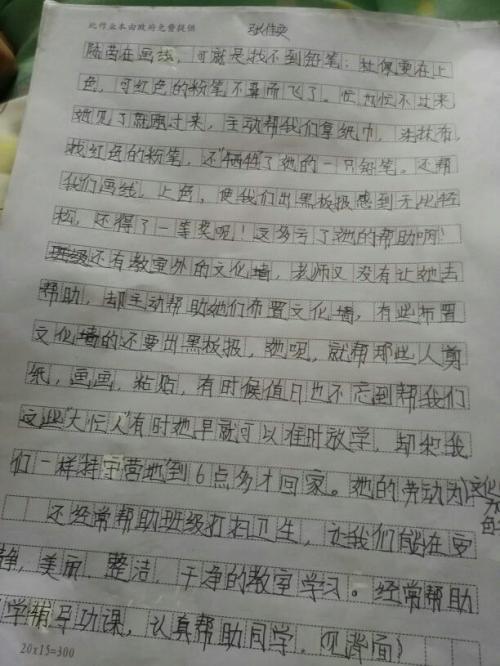 此作业本由政府免费提供
陆茜在画线，可就是找不到铅笔；杜佩雯在上
色，可红色的粉笔不翼而飞了。忙忙忙不过来
她见了就跑过来，主动帮我们拿纸巾，抹布，
找红色的粉笔，还“牺牲”了她的一只铅笔。还帮
我们画线，上色，使我们出黑板报感到无比轻
松，还得了一等奖呢！这多亏了她的帮助啊！
还有教室外的文化墙，老师又没有让她去
帮助，却主动帮助她们布置文化墙，有些布置
文化墙的还要出黑板报，她呢，就帮那些人剪
纸，画画，粘贴，有时候值日也不忘到帮我们
这些“大忙人”有时她早就可以准时放学，却和我
们一样特 地到6点多才回家。她的劳动为文化
还经常帮助班级打扫卫生，让我们能在安
静，美丽，整洁，干净的教室学习。经常帮助
学辅导功课，认真帮助同学。（见背面）
20x15=300